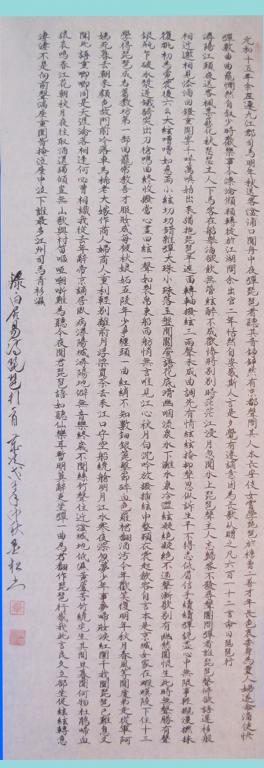 元和十五年余左遷九江郡司馬明年秋送客湓浦口聞舟中夜彈琵琶者聽其音錚錚然有京都聲問其人本長安倡女嘗學琵琶於穆曹二善才年長色衰委身為賈人婦遂命酒使快
彈數曲曲罷憫然自敘少小時歡樂事今漂淪憔悴轉徙於江湖間余出官二年恬然自安感斯人言是夕覺有遷謫意因為長歌以贈之凡六百一十二言命曰琵琶行
潯陽江頭夜送客楓葉荻花秋瑟瑟主人下馬客在船舉酒欲飲無管絃醉不成歡慘將別別時茫茫江浸月忽聞水上琵琶聲主人忘歸客不發尋聲暗問彈者誰琵琶聲停欲語遲移船
相近邀相見添酒回燈重開宴千呼萬喚始出來猶抱琵琶半遮面轉軸撥絃三兩聲未成曲調先有情絃絃掩抑聲聲思似訴平生不得志低眉信手續續彈說盡心中無限事輕攏慢撚抹
復挑初為霓裳後六么大絃嘈嘈如急雨小絃切切如私語嘈嘈切切錯雜彈大珠小珠落玉盤間關鶯語花底滑幽咽流泉水下灘水泉冷澀絃凝絕凝絕不通聲漸歇別有幽愁闇恨生此時無聲勝有聲
銀瓶乍破水漿迸鐵騎突出刀槍鳴曲終收撥當心畫四絃一聲如裂帛東船西舫悄無言唯見江心秋月白沈吟放撥插絃中整頓衣裳起斂容自言本是京城女家在蝦蟆陵下住十三
學得琵琶成名屬教坊第一部曲罷常教善才服妝成每被秋娘妒五陵年少爭纏頭一曲紅綃不知數鈿頭銀篦擊節碎血色羅裙翻酒污今年歡笑復明年秋月春風等閒度弟走從軍阿
姨死暮去朝來顏色故門前冷落車馬稀老大嫁作商人婦商人重利輕別離前月浮梁買茶去去來江口守空船繞船明月江水寒夜深忽夢少年事夢啼妝淚紅闌干我聞琵琶已歎息又
聞此語重唧唧同是天涯淪落人相逢何必曾相識我從去年辭帝京謫居臥病潯陽城潯陽地僻無音樂終歲不聞絲竹聲住近湓城地低濕黃蘆苦竹繞宅生其間旦暮聞何物杜鵑啼血
猿哀鳴春江花朝秋月夜往往取酒還獨傾豈無山歌與村笛嘔啞嘲哳難為聽今夜聞君琵琶語如聽仙樂耳暫明莫辭更坐彈一曲為君翻作琵琶行感我此言良久立卻坐促絃絃轉急
淒淒不是向前聲滿座重聞皆掩泣座中泣下誰最多江州司馬青衫濕
錄白居易詩琵琶行一首